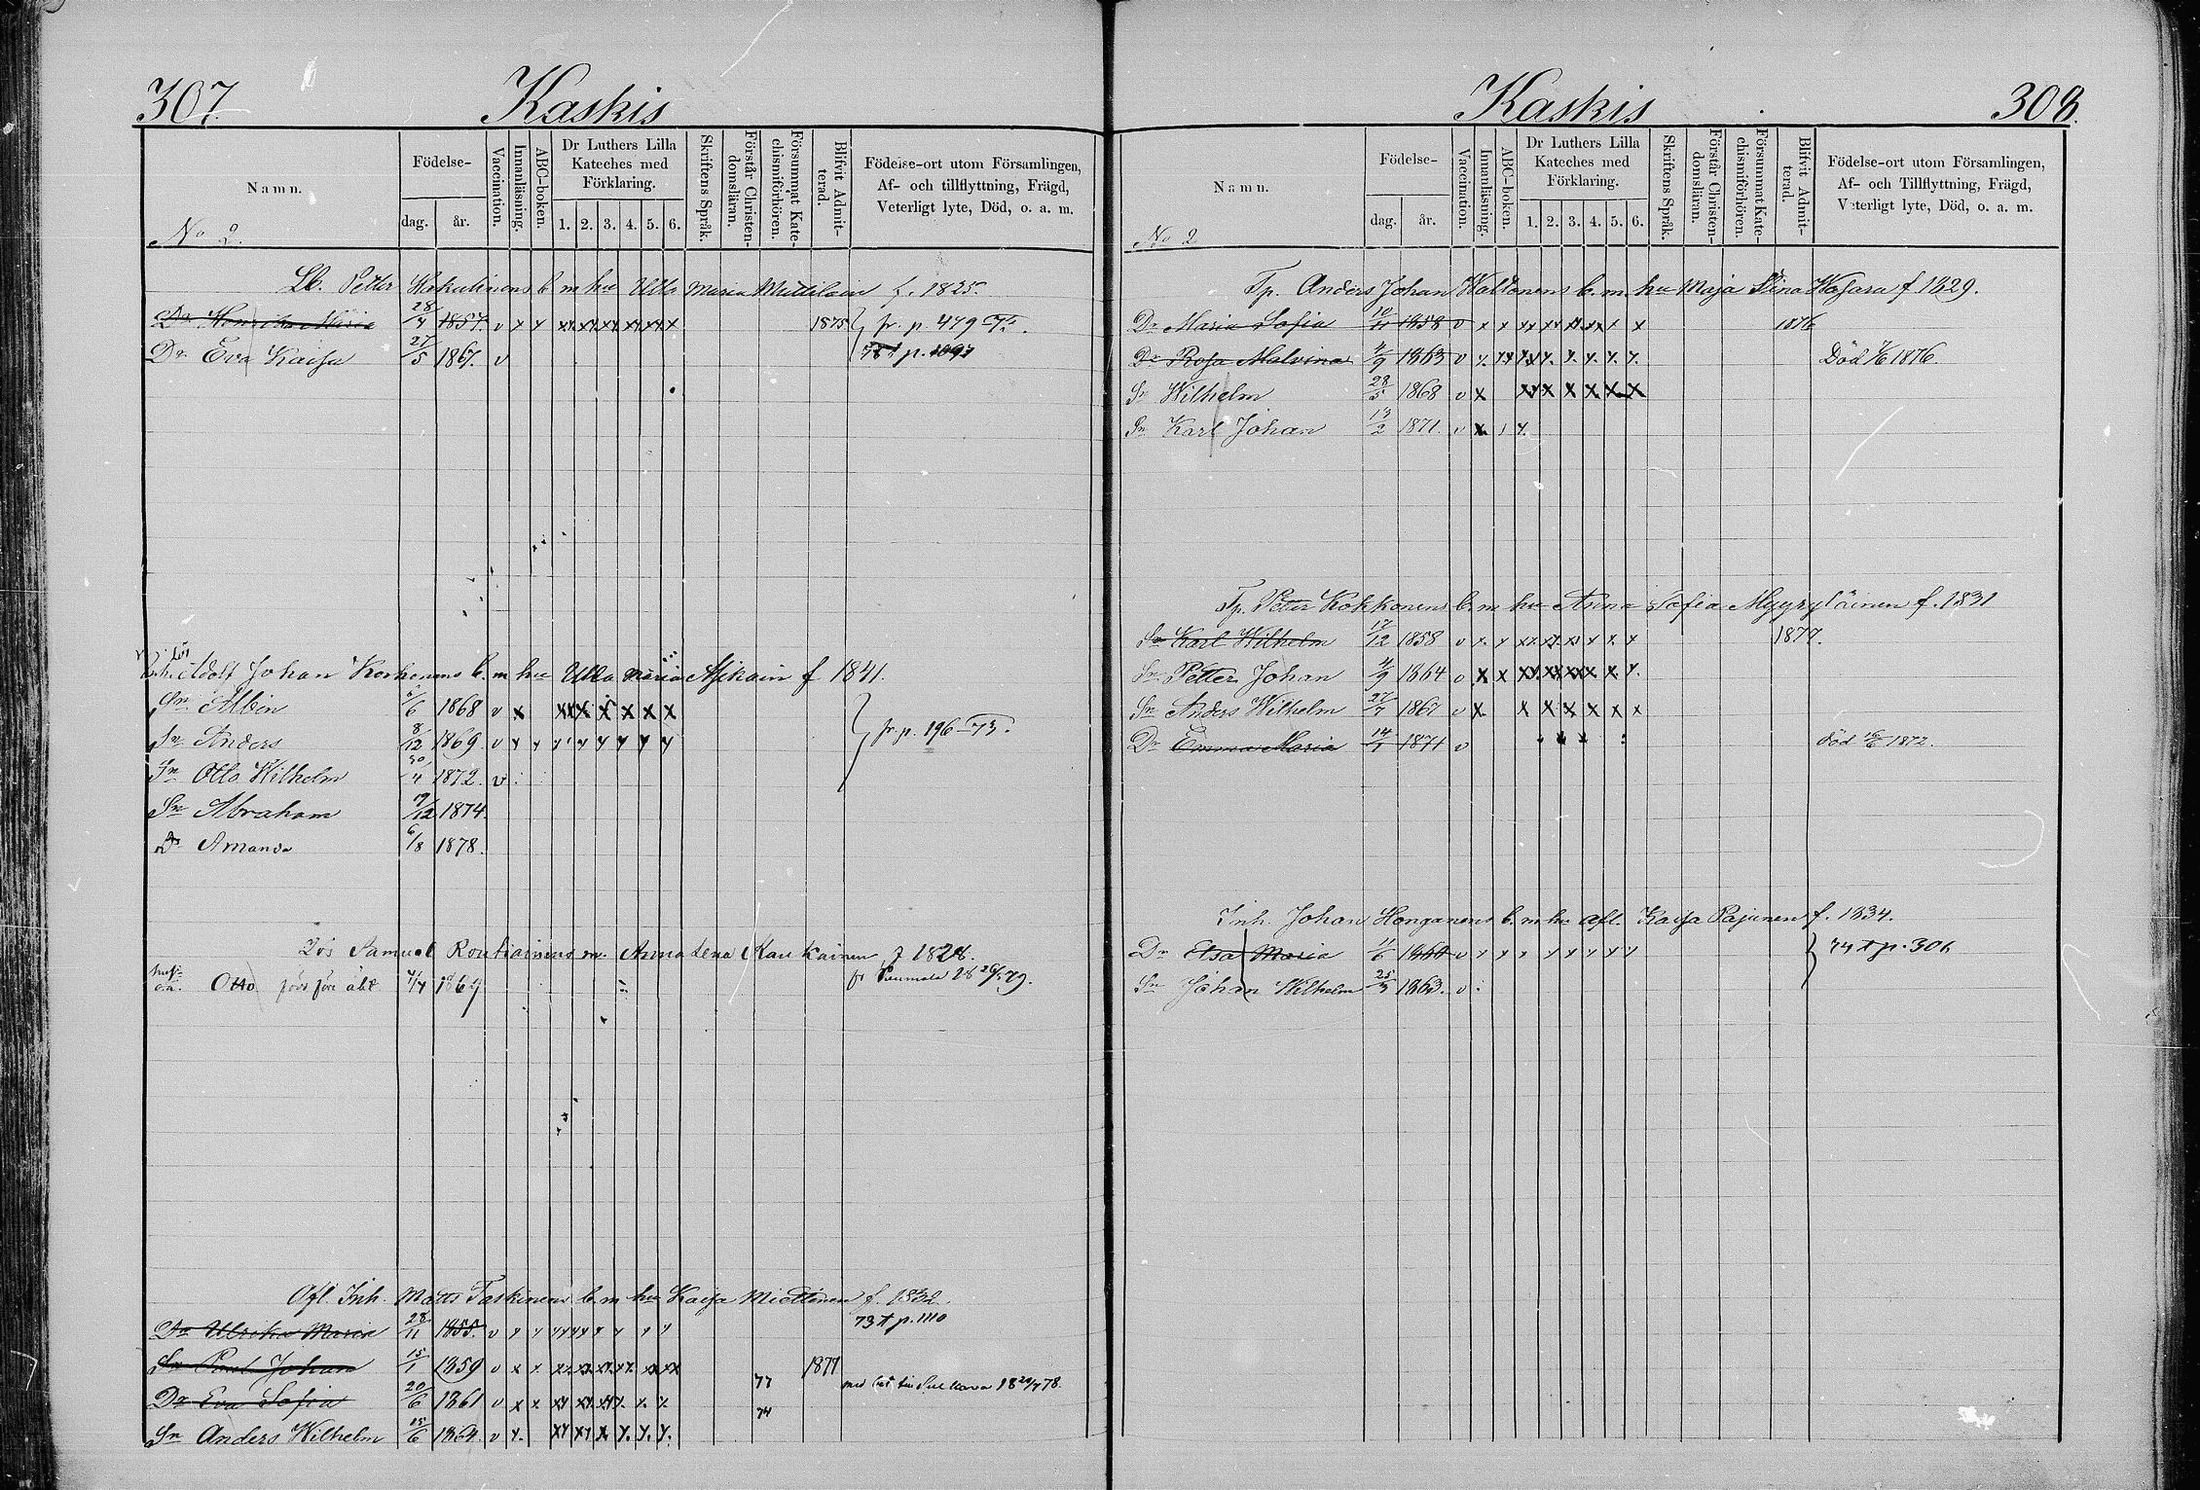 307. Kaskis
Namn.
Födelse-
dag. år.
Vaccination.
Innanläsning.
ABC-boken.
Dr Luthers Lilla Kateches med Förklaring.
1. 2. 3. 4. 5. 6.
Skriftens Språk.
Förstår Christendomsläran.
Försummat Katechismiförhören.
Blifvit Admitterad.
Födelse-ort utom Församlingen,
Af- och tillflyttning, Frägd,
Veterligt lyte, Död, o. a. m.
No 2.
Lb. Petter b m hu Ulla Maria f. 1825.
Dr Maria 28/4 1857. v x x 1875 fr. p. 479
Dr. Eva Kaisa 27/5 1867. v
Adolf Johan Korhonens b. m hu Ulla Maria f 1841.
Sn Albin 6/6 1868 v x x x x x x x
Sn Anders 8/12 1869 v x x x x x x x x fr. p. 196 73.
Sn Otto Wilhelm 30/4 1872. v
Sn Abraham 19/12 1874.
Dr Amanda 6/8 1878.
Lös Samuel m. Anna Lena Kaukainen f 1828.
Otto 4/4 1869 fr 79.
Afl. Inh. Matts Taskinens b. m hu Kaisa Miettinen f. 1832.
Dr Ulrika Maria 28/11 1855. v 73 t p. 1110
Sn Paul Johan 15/1 1859 v x x 1877
77
Dr Eva Sofia 20/6 1861 v x x
74
Sn Anders Wilhelm 15/6 1864. v x.
Kaskis 308.
Namn.
Födelse-
dag. år.
Vaccination.
Innanläsning.
ABC-boken.
Dr Luthers Lilla Kateches med Förklaring.
1. 2. 3. 4. 5. 6.
Skriftens Språk.
Förstår Christendomsläran.
Försummat Katechismiförhören.
Blifvit Admitterad.
Födelse-ort utom Församlingen,
Af- och Tillflyttning, Frägd,
Veterligt lyte, Död, o. a. m.
No 2
Tp. Anders Johan Valtonens b. m. hu Maja Stina f 1829.
Dr Maria Sofia 10/11 1858 v x x xx xx xx xx x x 1876
Dr Rosa Malvina 4/9 1863 v Död 1876.
Sn Wilhelm 28/5 1868 v x
Sn Karl Johan 13/2 1871. v x
Tp. Petter Kokkonens b. m hu Anna Sofia Myyryläinen f. 1831
Sn Karl Wilhelm 17/12 1858 v x x 1877.
Sn Petter Johan 4/9 1864 v x x
Sn Anders Wilhelm 27/7 1867 v x x x x x x x
Dr Emma Maria 14/1 1871 v död 1872.
Inh. Johan Honganens b. m hu afl. Kaisa Pajunen f. 1834.
Dr Elsa Maria 11/6 1860 v x x x x x x x x 74 t p. 306
Sn Johan Wilhelm 25/9 1863. v